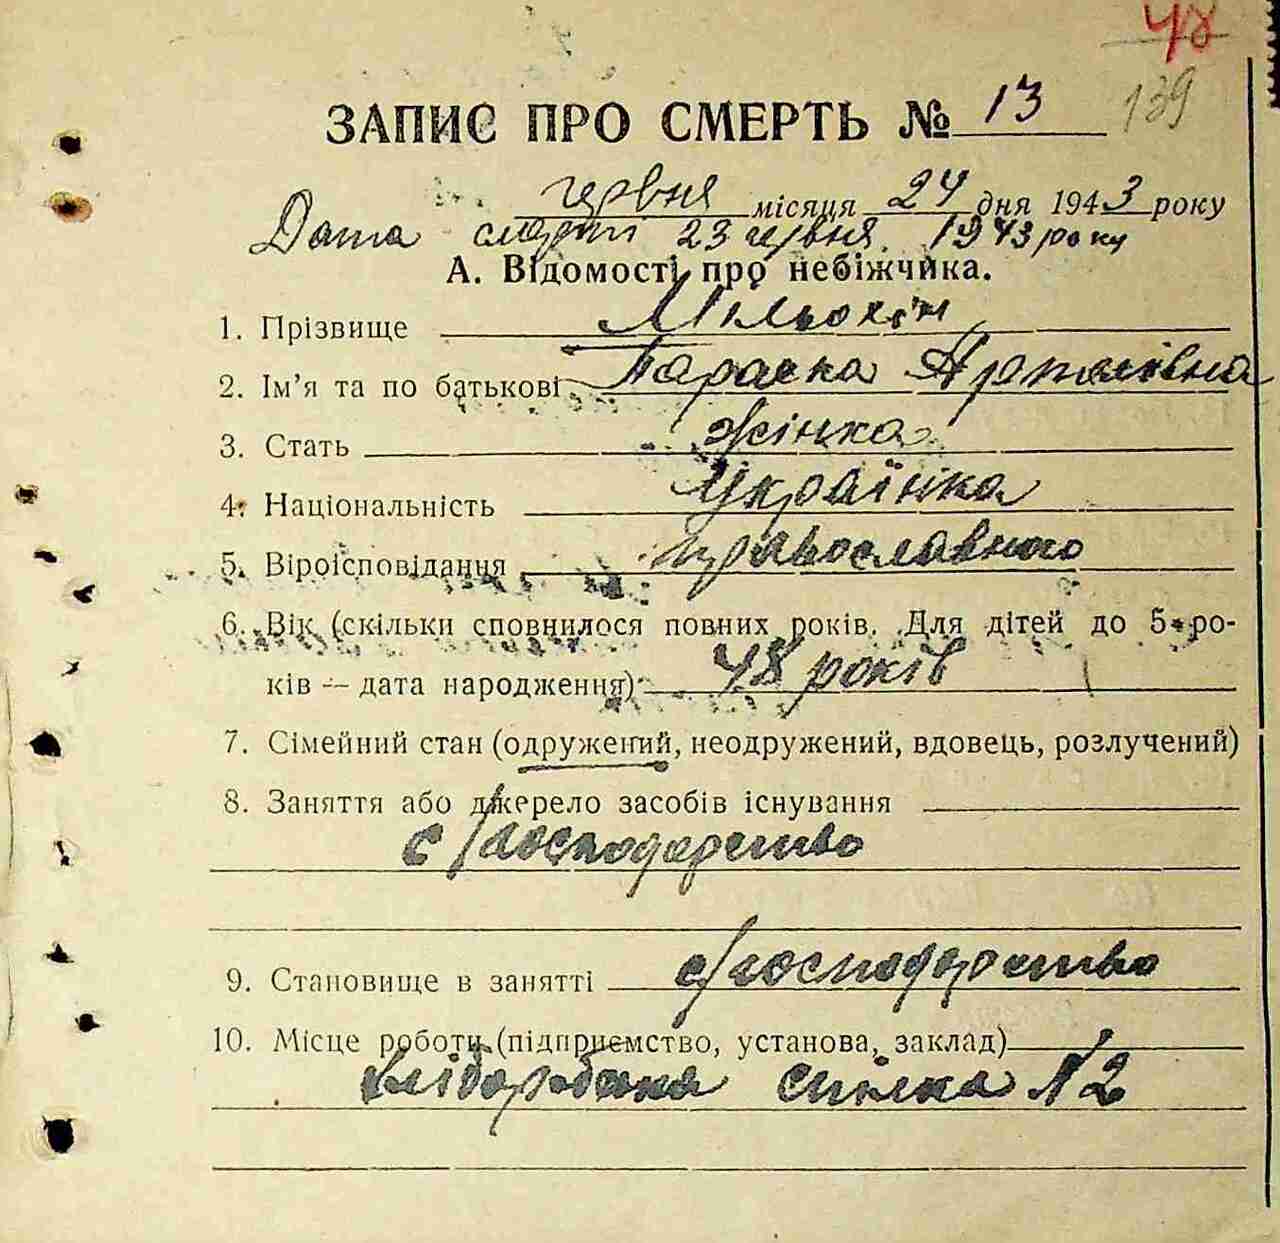 48
ЗАПИС ПРО СМЕРТЬ № 13 139
червня місяця 24 дня 1943 року
Дата смерті 23 червня 1943 року
А. Відомості про небіжчика.
1. Прізвище Мільохін
2. Ім'я та по батькові Параска
3. Стать жінка
4. Національність Українка
5. Віроісповідання православного
6. Вік (скільки сповнилося повних років. Для дітей до 5 ро-
ків — дата народження) 48 років
7. Сімейний стан (одружений, неодружений, вдовець, розлучений)
8. Заняття або джерело засобів існування
с/господарство
9. Становище в занятті с/господарство
10. Місце роботи (підприємство, установа, заклад)
хліборобська спілка №2